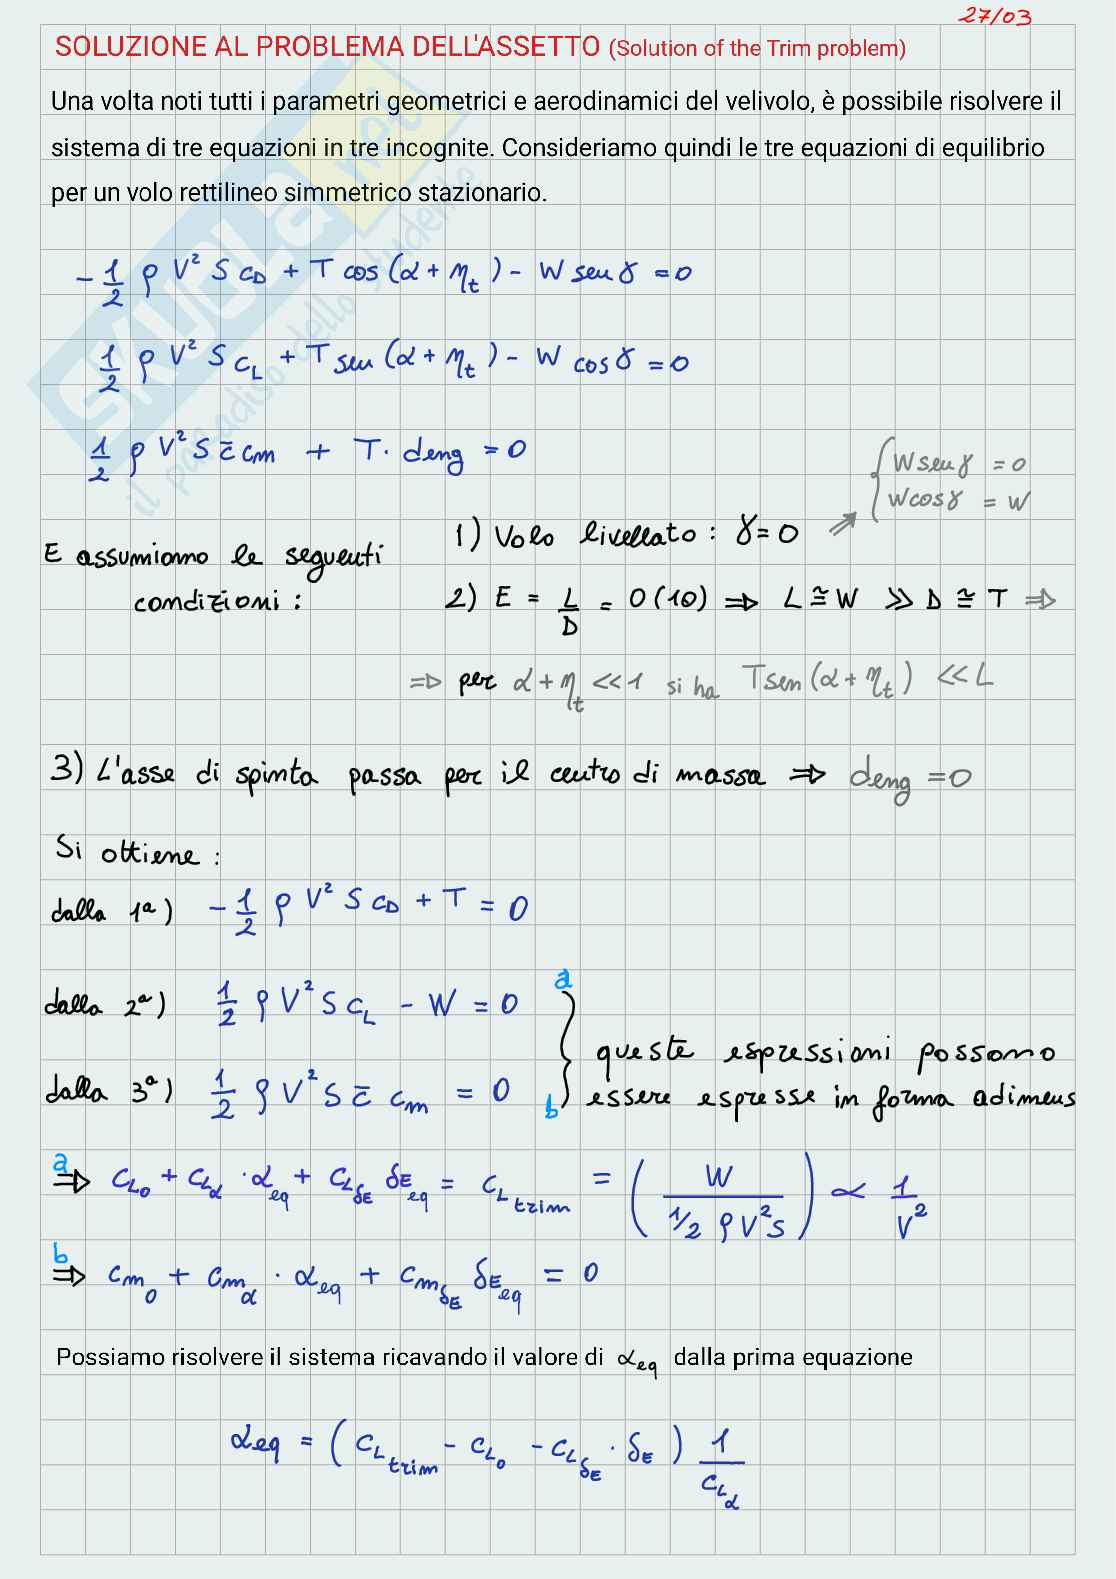 27/03
SOLUZIONE AL PROBLEMA DELL'ASSETTO (Solution of the Trim problem)
Una volta noti tutti i parametri geometrici e aerodinamici del velivolo, è possibile risolvere il
sistema di tre equazioni in tre incognite. Consideriamo quindi le tre equazioni di equilibrio
per un volo rettilineo simmetrico stazionario.
SKUOLA.net
il paradiso dello studente
- 1/2 ρ V² S C_D + T cos(α + η_t) - W sen γ = 0
1/2 ρ V² S C_L + T sen (α + η_t) - W cos γ = 0
1/2 ρ V² S c̄ c_m + T · deng = 0
{ W sen γ = 0
W cos γ = W
E assumiamo le seguenti
condizioni :
1) Volo livellato : γ = 0 ⇒
2) E = L/D = O(10) ⇒ L ≅ W ≫ D ≅ T ⇒
⇒ per α + η_t << 1 si ha T sen (α + η_t) << L
3) L'asse di spinta passa per il centro di massa ⇒ deng = 0
Si ottiene :
dalla 1ª) - 1/2 ρ V² S C_D + T = 0
dalla 2ª) 1/2 ρ V² S C_L - W = 0 a
dalla 3ª) 1/2 ρ V² S c̄ c_m = 0 b
} queste espressioni possono
essere espresse in forma adimens
a ⇒ C_L0 + C_Lα · α_eq + C_LδE δE_eq = C_L trim = ( W / (1/2 ρ V² S) ) ∝ 1/V²
b ⇒ C_m0 + C_mα · α_eq + C_mδE δE_eq = 0
Possiamo risolvere il sistema ricavando il valore di α_eq dalla prima equazione
α_eq = ( C_L trim - C_L0 - C_LδE · δE ) 1/C_Lα